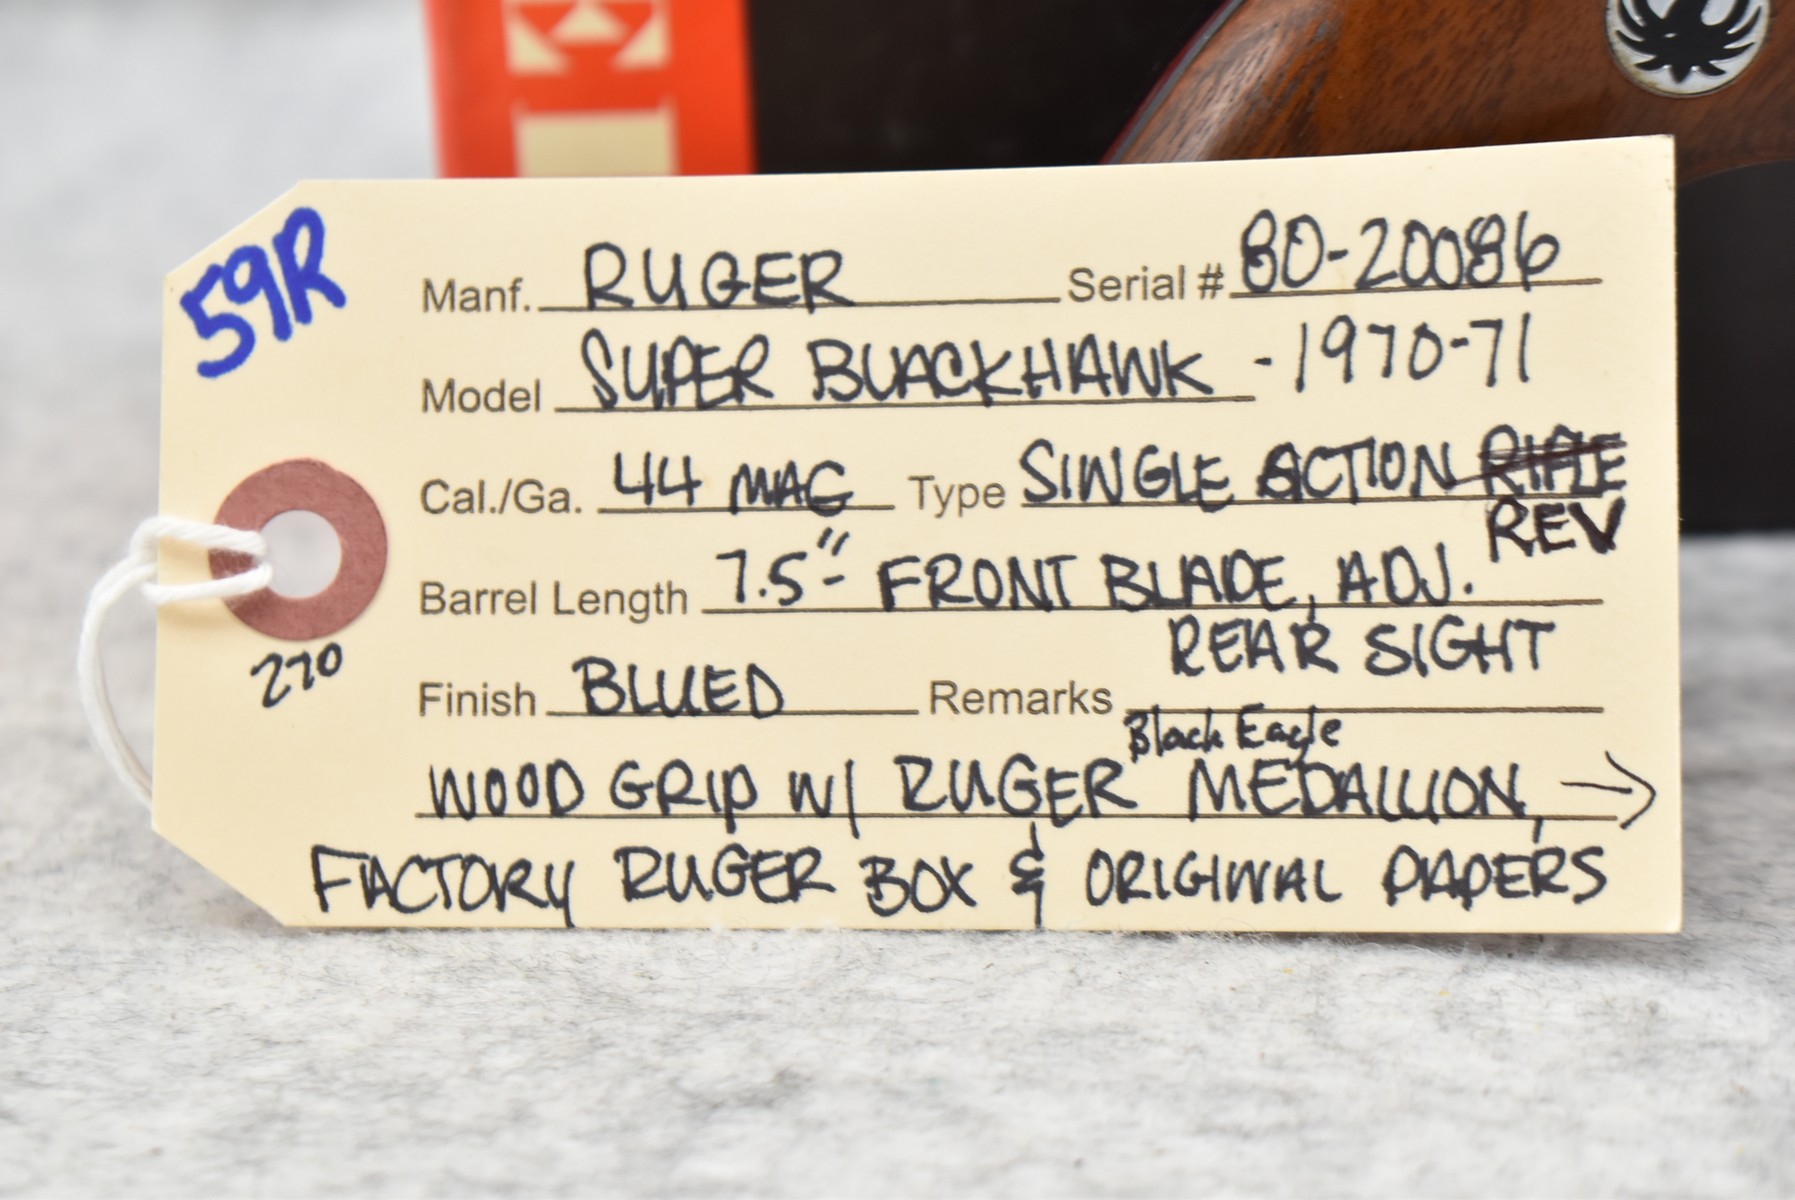 59R
Manf. RUGER Serial # 80-20086
Model SUPER BLACKHAWK - 1970-71
Cal./Ga. 44 MAG Type SINGLE ACTION RIFLE
REV
Barrel Length 7.5" - FRONT BLADE, ADJ.
REAR SIGHT
270
Finish BLUED Remarks
Black Eagle
WOOD GRIP W/ RUGER MEDALLION, →
FACTORY RUGER BOX & ORIGINAL PAPERS